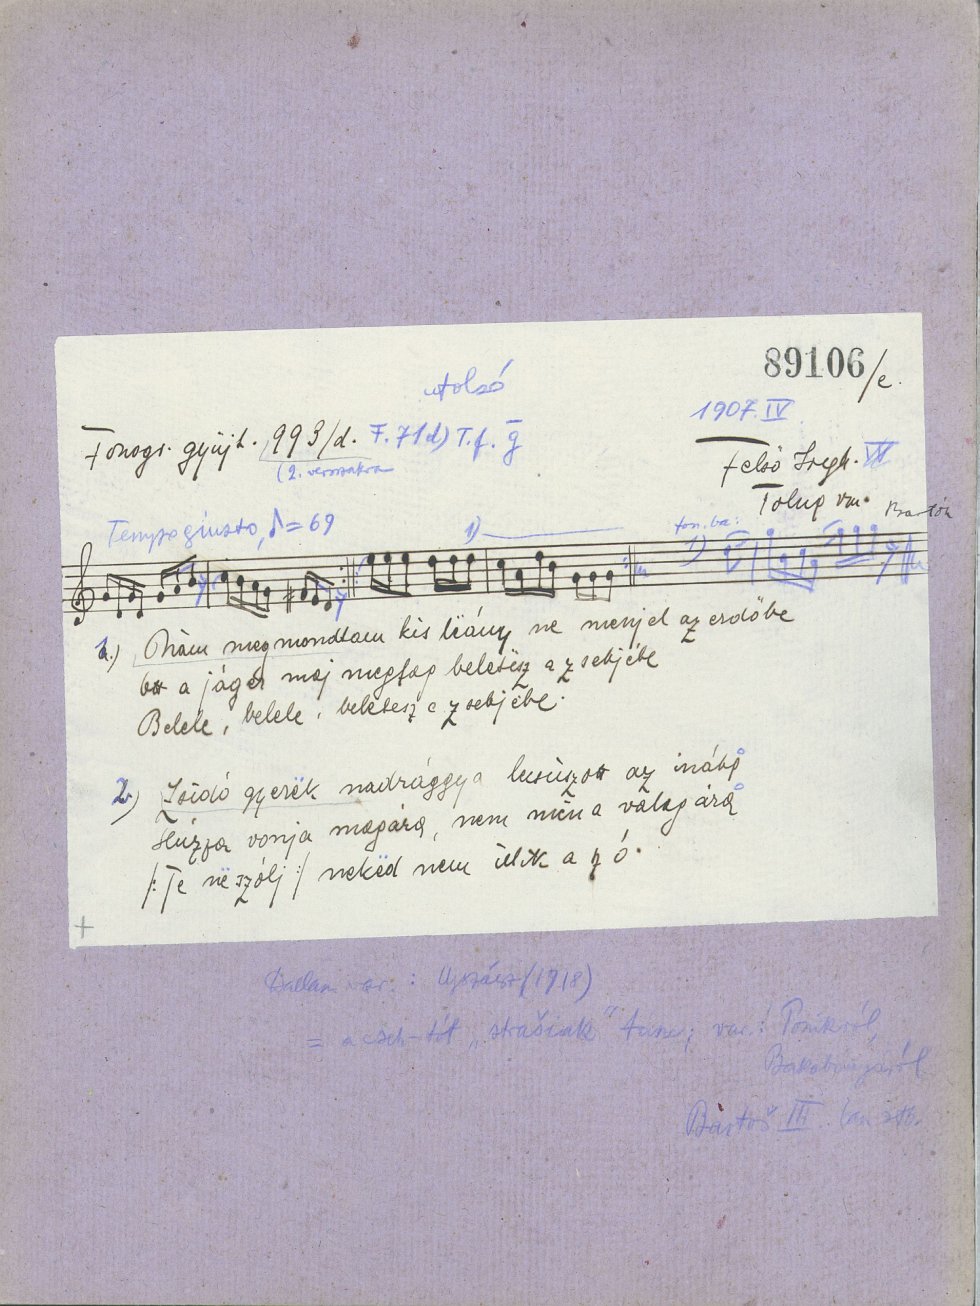 89106/e.
utolsó
1907. IV
Fonogr. gyűjt. 993/d. F. 71d) T. f. g
(2. versszakra
Felső Iregh. VI
Tolna vm. Bartók
Tempo giusto, ♪ = 69
1)
fon.ba:
1)
1.) Nám megmondtam kis lëány ne menjel az erdőbe
a jáger maj megfog beletësz a zsebjébe
Belele, belele, beletesz a zsebjébe.
2.) Zsidó gyerëk nadrággya lusúszott az
Húzza vonja magára, nem
/: Të në szólj :/ nekëd nem ülik a zó.
+
Dallam var.: Ujszász (1918)
= a cseh-tót „strašiak" tánc; var.: Ponikról,
Bakabányáról
Bartoš III.